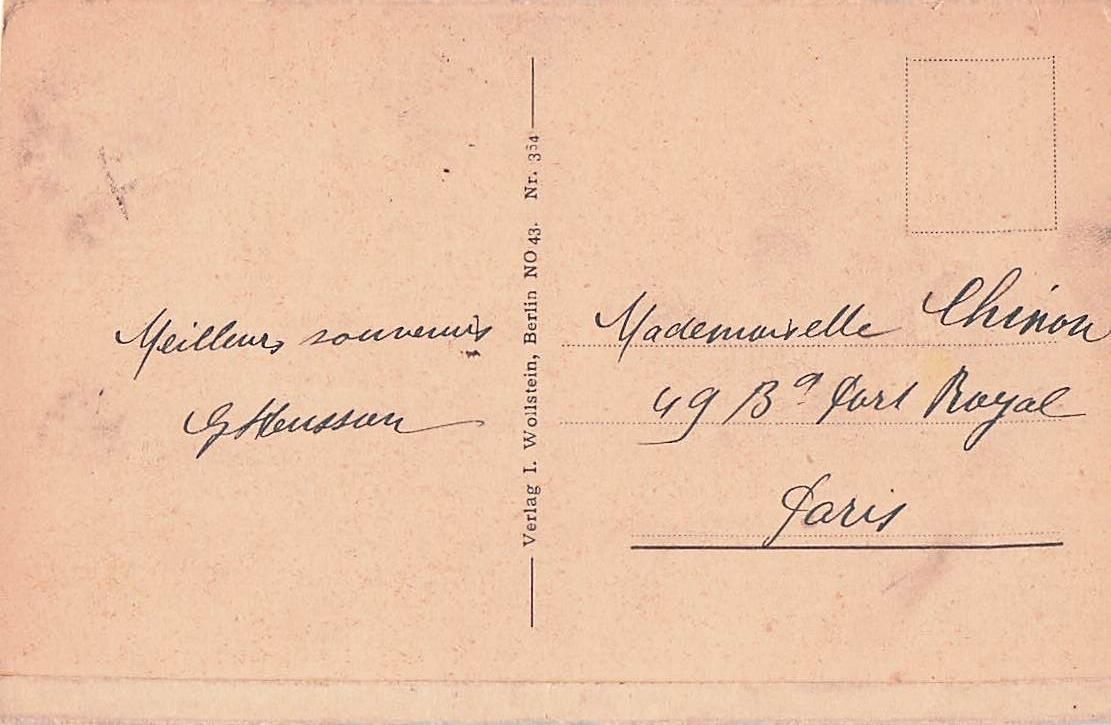 Meilleurs souvenirs
Verlag I. Wollstein, Berlin NO 43. Nr. 354
Mademoiselle Chinon
49 Bd Port Royal
Paris